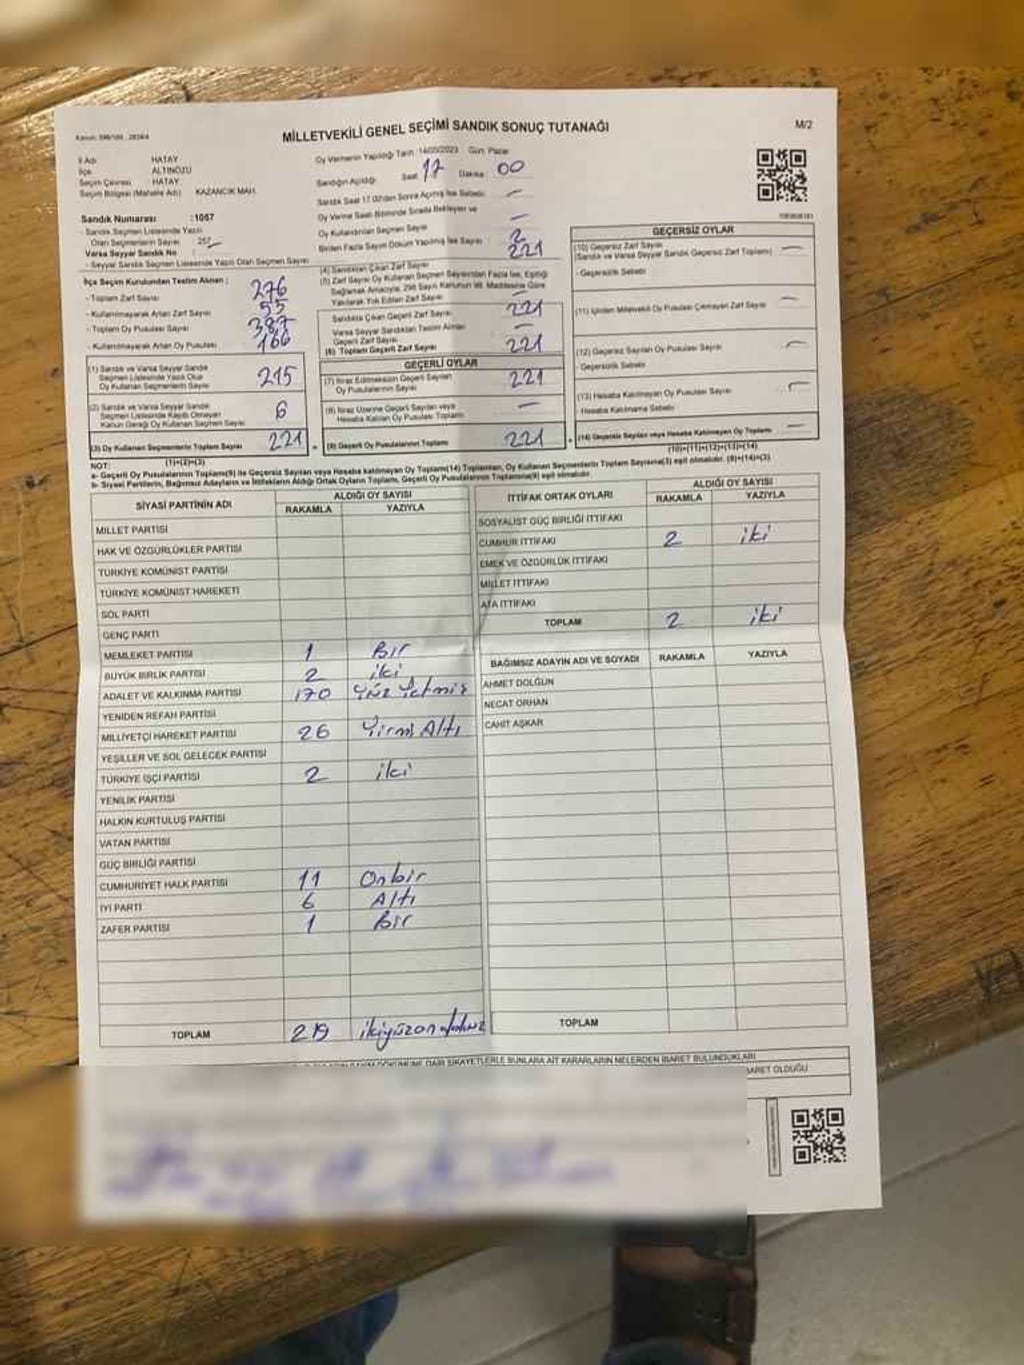 MİLLETVEKİLİ GENEL SEÇİMİ SANDIK SONUÇ TUTANAĞI
M/2
İl Adı HATAY
İlçe ALTINÖZÜ
Seçim Çevresi HATAY
Seçim Bölgesi (Mahalle Adı) KAZANCIK MAH.
Sandık Numarası :1067
- Sandık Seçmen Listesinde Yazılı
Olan Seçmenlerin Sayısı 257
Varsa Seyyar Sandık No :
- Seyyar Sandık Seçmen Listesinde Yazılı Olan Seçmen Sayısı
Oy Vermenin Yapıldığı Tarih :14/05/2023 Gün: Pazar
Sandığın Açıldığı Saat 17 Dakika 00
Sandık Saat 17.00'den Sonra Açılmış İse Sebebi: -
Oy Verme Saati Bitiminde Sırada Bekleyen ve
Oy Kullandırılan Seçmen Sayısı -
Birden Fazla Sayım Döküm Yapılmış İse Sayısı : 2
İlçe Seçim Kurulundan Teslim Alınan :
- Toplam Zarf Sayısı 276
- Kullanılmayarak Artan Zarf Sayısı 55
- Toplam Oy Pusulası Sayısı 387
- Kullanılmayarak Artan Oy Pusulası 166
(1) Sandık ve Varsa Seyyar Sandık
Seçmen Listesinde Yazılı Olup
Oy Kullanan Seçmenlerin Sayısı 215
(2) Sandık ve Varsa Seyyar Sandık
Seçmen Listesinde Kayıtlı Olmayan
Kanun Gereği Oy Kullanan Seçmen Sayısı 6
(3) Oy Kullanan Seçmenlerin Toplam Sayısı 221
(1)+(2)=(3)
(4) Sandıktan Çıkan Zarf Sayısı 221
(5) Zarf Sayısı Oy Kullanan Seçmen Sayısından Fazla İse, Eşitliği
Sağlamak Amacıyla, 298 Sayılı Kanunun 98. Maddesine Göre
Yakılarak Yok Edilen Zarf Sayısı -
Sandıkta Çıkan Geçerli Zarf Sayısı 221
Varsa Seyyar Sandıktan Teslim Alınan
Geçerli Zarf Sayısı -
(6) Toplam Geçerli Zarf Sayısı 221
GEÇERLİ OYLAR
(7) İtiraz Edilmeksizin Geçerli Sayılan
Oy Pusulalarının Sayısı 221
(8) İtiraz Üzerine Geçerli Sayılan veya
Hesaba Katılan Oy Pusulası Toplamı -
(9) Geçerli Oy Pusulalarının Toplamı 221
GEÇERSİZ OYLAR
(10) Geçersiz Zarf Sayısı
(Sandık ve Varsa Seyyar Sandık Geçersiz Zarf Toplamı) -
- Geçersizlik Sebebi
(11) İçinden Milletvekili Oy Pusulası Çıkmayan Zarf Sayısı -
(12) Geçersiz Sayılan Oy Pusulası Sayısı -
- Geçersizlik Sebebi
(13) Hesaba Katılmayan Oy Pusulası Sayısı -
- Hesaba Katılmama Sebebi
(14) Geçersiz Sayılan veya Hesaba Katılmayan Oy Toplamı -
(10)+(11)+(12)+(13)=(14)
NOT:
a- Geçerli Oy Pusulalarının Toplamı(9) ile Geçersiz Sayılan veya Hesaba katılmayan Oy Toplamı(14) Toplamları, Oy Kullanan Seçmenlerin Toplam Sayısına(3) eşit olmalıdır. (9)+(14)=(3)
b- Siyasi Partilerin, Bağımsız Adayların ve İttifakların Aldığı Ortak Oyların Toplamı, Geçerli Oy Pusulalarının Toplamına(9) eşit olmalıdır.
SİYASİ PARTİNİN ADI ALDIĞI OY SAYISI
RAKAMLA YAZIYLA
MİLLET PARTİSİ
HAK VE ÖZGÜRLÜKLER PARTİSİ
TÜRKİYE KOMÜNİST PARTİSİ
TÜRKİYE KOMÜNİST HAREKETİ
SOL PARTİ
GENÇ PARTİ
MEMLEKET PARTİSİ 1 Bir
BÜYÜK BİRLİK PARTİSİ 2 iki
ADALET VE KALKINMA PARTİSİ 170 Yüz Yetmiş
YENİDEN REFAH PARTİSİ
MİLLİYETÇİ HAREKET PARTİSİ 26 Yirmi Altı
YEŞİLLER VE SOL GELECEK PARTİSİ
TÜRKİYE İŞÇİ PARTİSİ 2 iki
YENİLİK PARTİSİ
HALKIN KURTULUŞ PARTİSİ
VATAN PARTİSİ
GÜÇ BİRLİĞİ PARTİSİ
CUMHURİYET HALK PARTİSİ 11 Onbir
İYİ PARTİ 6 Altı
ZAFER PARTİSİ 1 Bir
TOPLAM 219 ikiyüzondokuz
İTTİFAK ORTAK OYLARI ALDIĞI OY SAYISI
RAKAMLA YAZIYLA
SOSYALİST GÜÇ BİRLİĞİ İTTİFAKI
CUMHUR İTTİFAKI 2 iki
EMEK VE ÖZGÜRLÜK İTTİFAKI
MİLLET İTTİFAKI
ATA İTTİFAKI
TOPLAM 2 iki
BAĞIMSIZ ADAYIN ADI VE SOYADI RAKAMLA YAZIYLA
AHMET DOLGUN
NECAT ORHAN
CAHİT AŞKAR
TOPLAM
DAİR ŞİKAYETLERLE BUNLARA AİT KARARLARIN NELERDEN İBARET BULUNDUKLARI
OLDUĞU